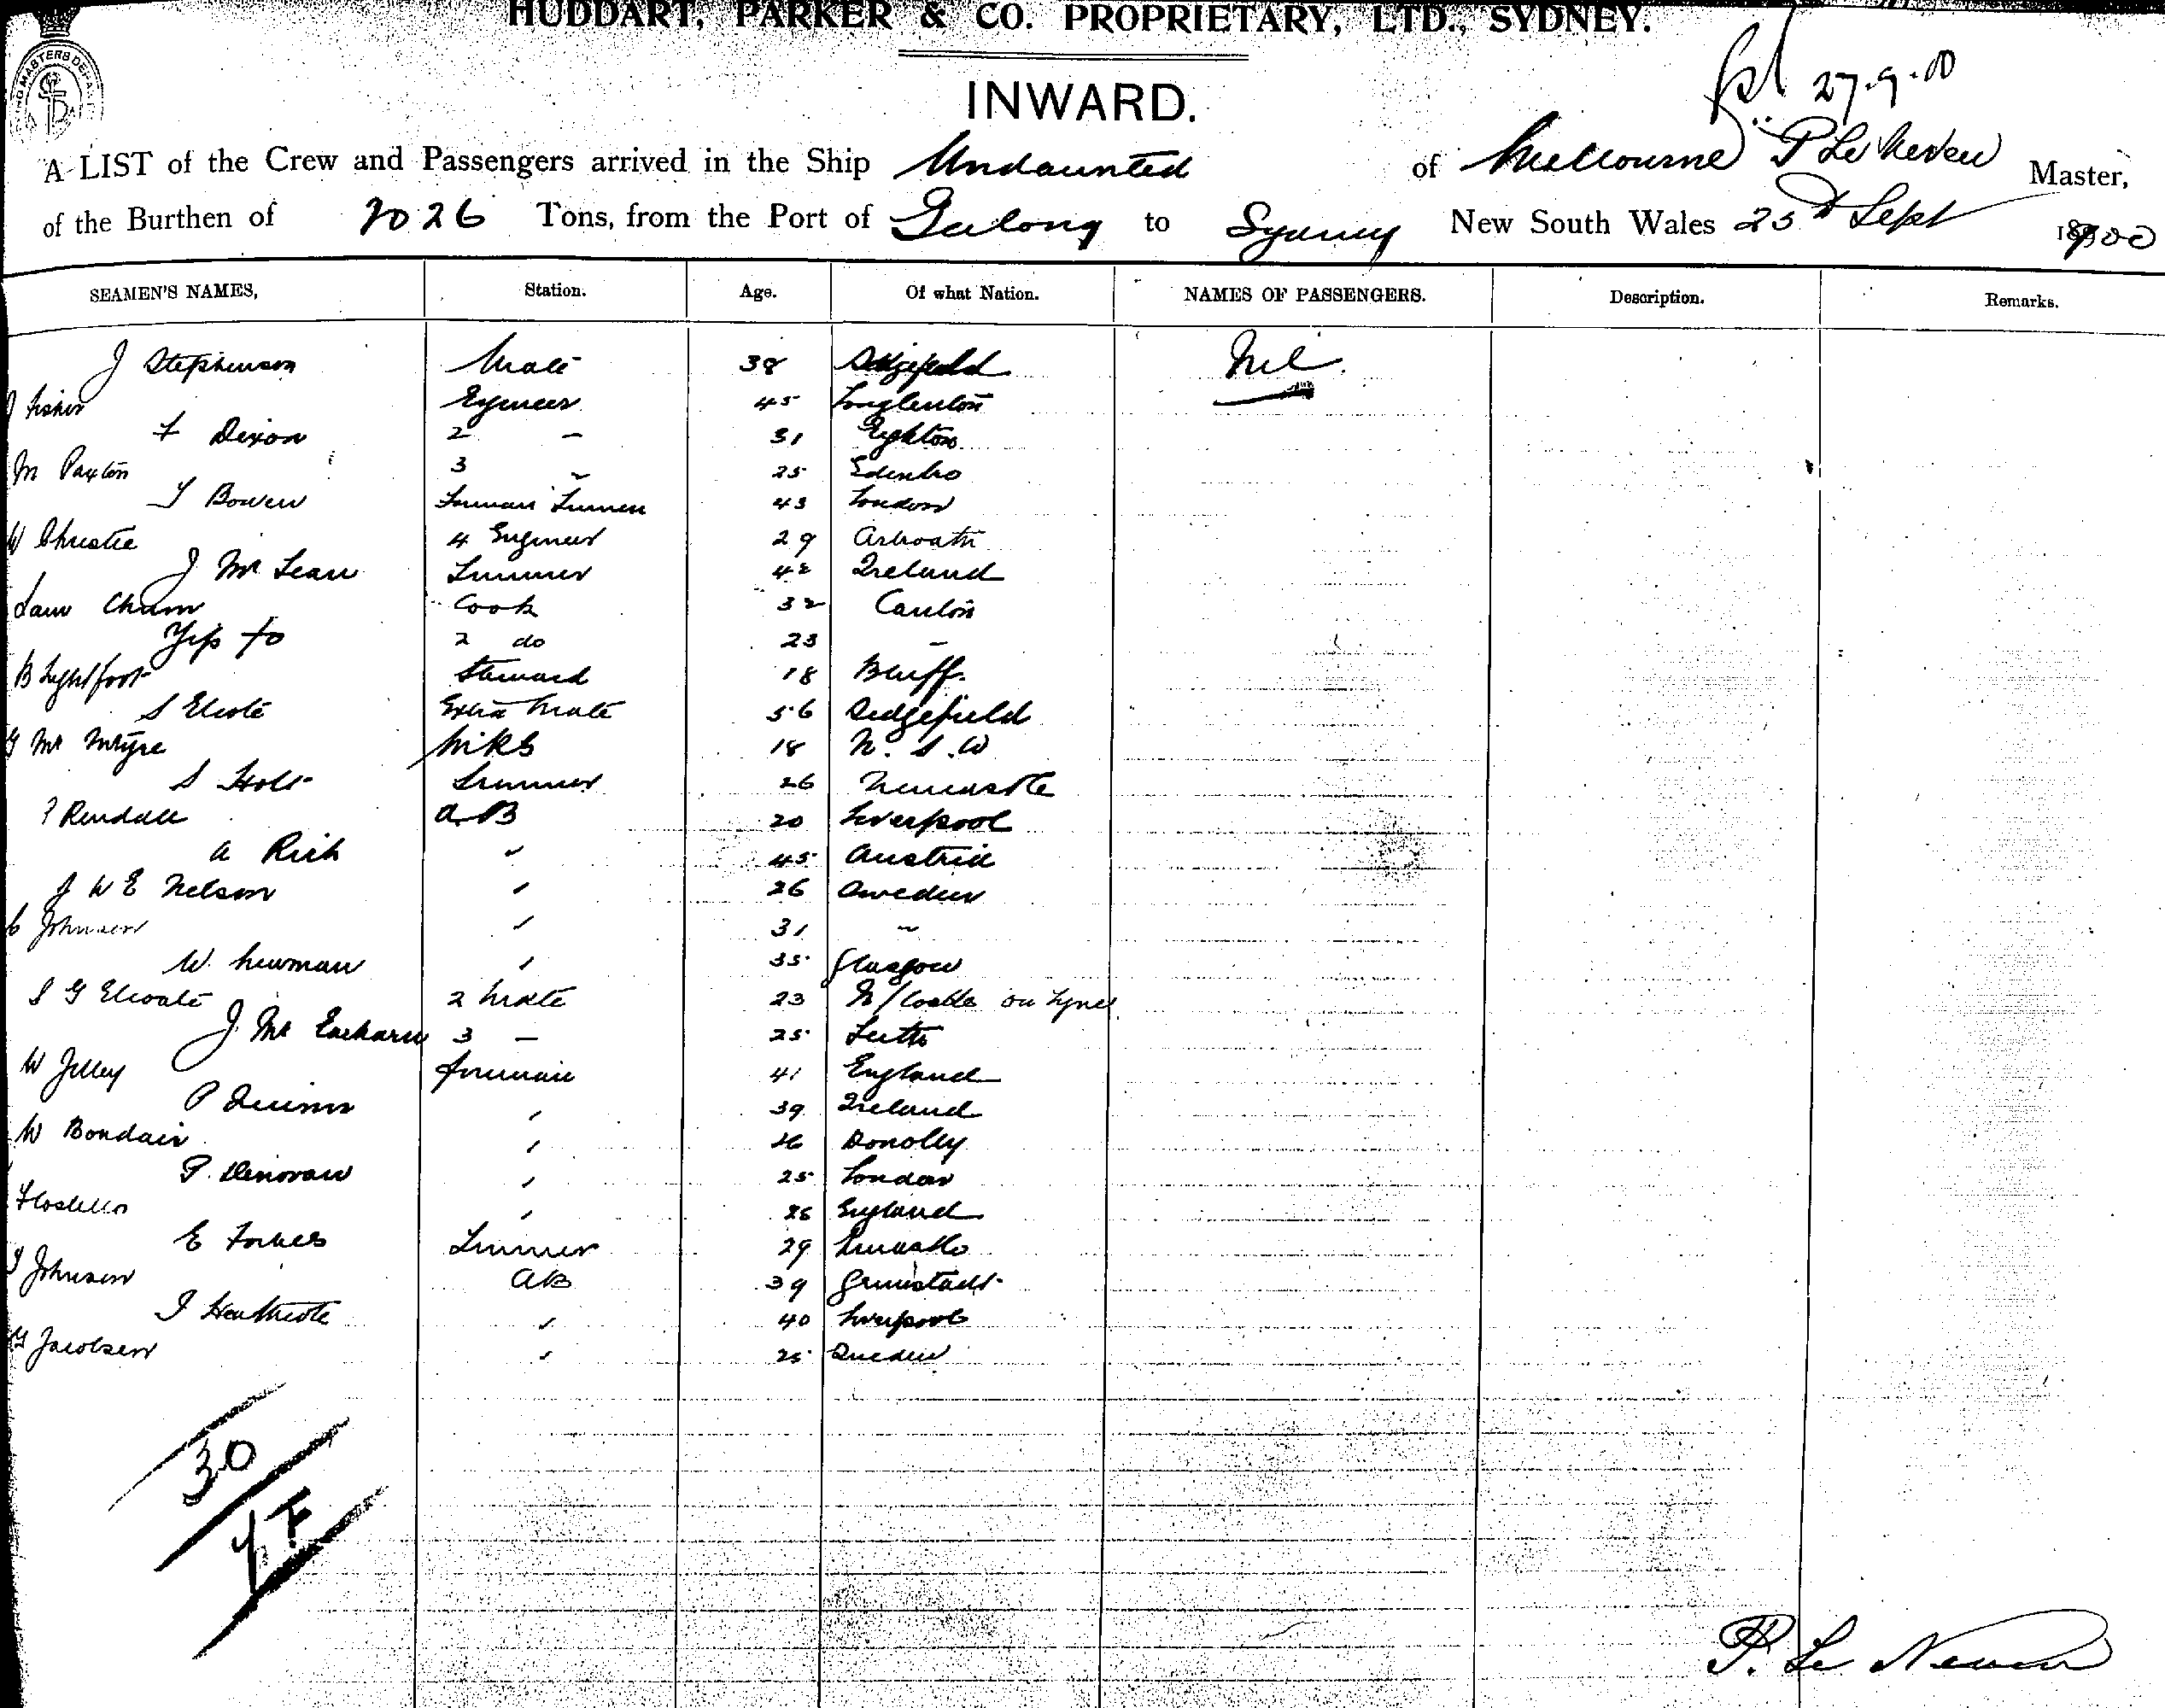 HUDDART, PARKER & CO. PROPRIETARY, LTD., SYDNEY.
INWARD.
27.9.00
A LIST of the Crew and Passengers arrived in the Ship Undaunted of Melbourne P Le Neveu Master,
of the Burthen of 2026 Tons, from the Port of Geelong to Sydney New South Wales 25th Sept 1900
SEAMEN'S NAMES, Station. Age. Of what Nation. NAMES OF PASSENGERS. Description. Remarks.
J Stephenson Mate 38 Sedgefield Nil.
J Fisher Engineer 45
F Dixon 2 - 31
M Paxton 3 - 25 Edinbro
T Bowen 43 London
W Christie 4 Engineer 29 Arbroath
J Mc Lean Trimmer 42 Ireland
Lam Cham Cook 32 Canton
Yip Fo 2 do 23 -
B Lightfoot Steward 18 Bluff.
S Elcoate Extra Mate 56 Sedgefield
Mc Intyre 18 N. S. W
S Holt Trimmer 26 Newcastle
Rendall A.B 20 Liverpool
A Rich " 45 Austria
J W E Nelson " 26 Sweden
C Johnson " 31 "
W. Newman " 35 Glasgow
S G Elcoate 2 Mate 23 N/Castle on Tyne
J. Mc Eachern 3 - 25 Leith
W Jelley Fireman 41 England
P Quinn " 39 Ireland
W Bondair " 26
P. Denovan " 25 London
Costello " 26 England
E Forbes Trimmer 29 Newcastle
J Johnson AB 39 Grimstadt
J Heathcote " 40 Liverpool
G Jacobsen " 25 Sweden
30
P. Le Neveu